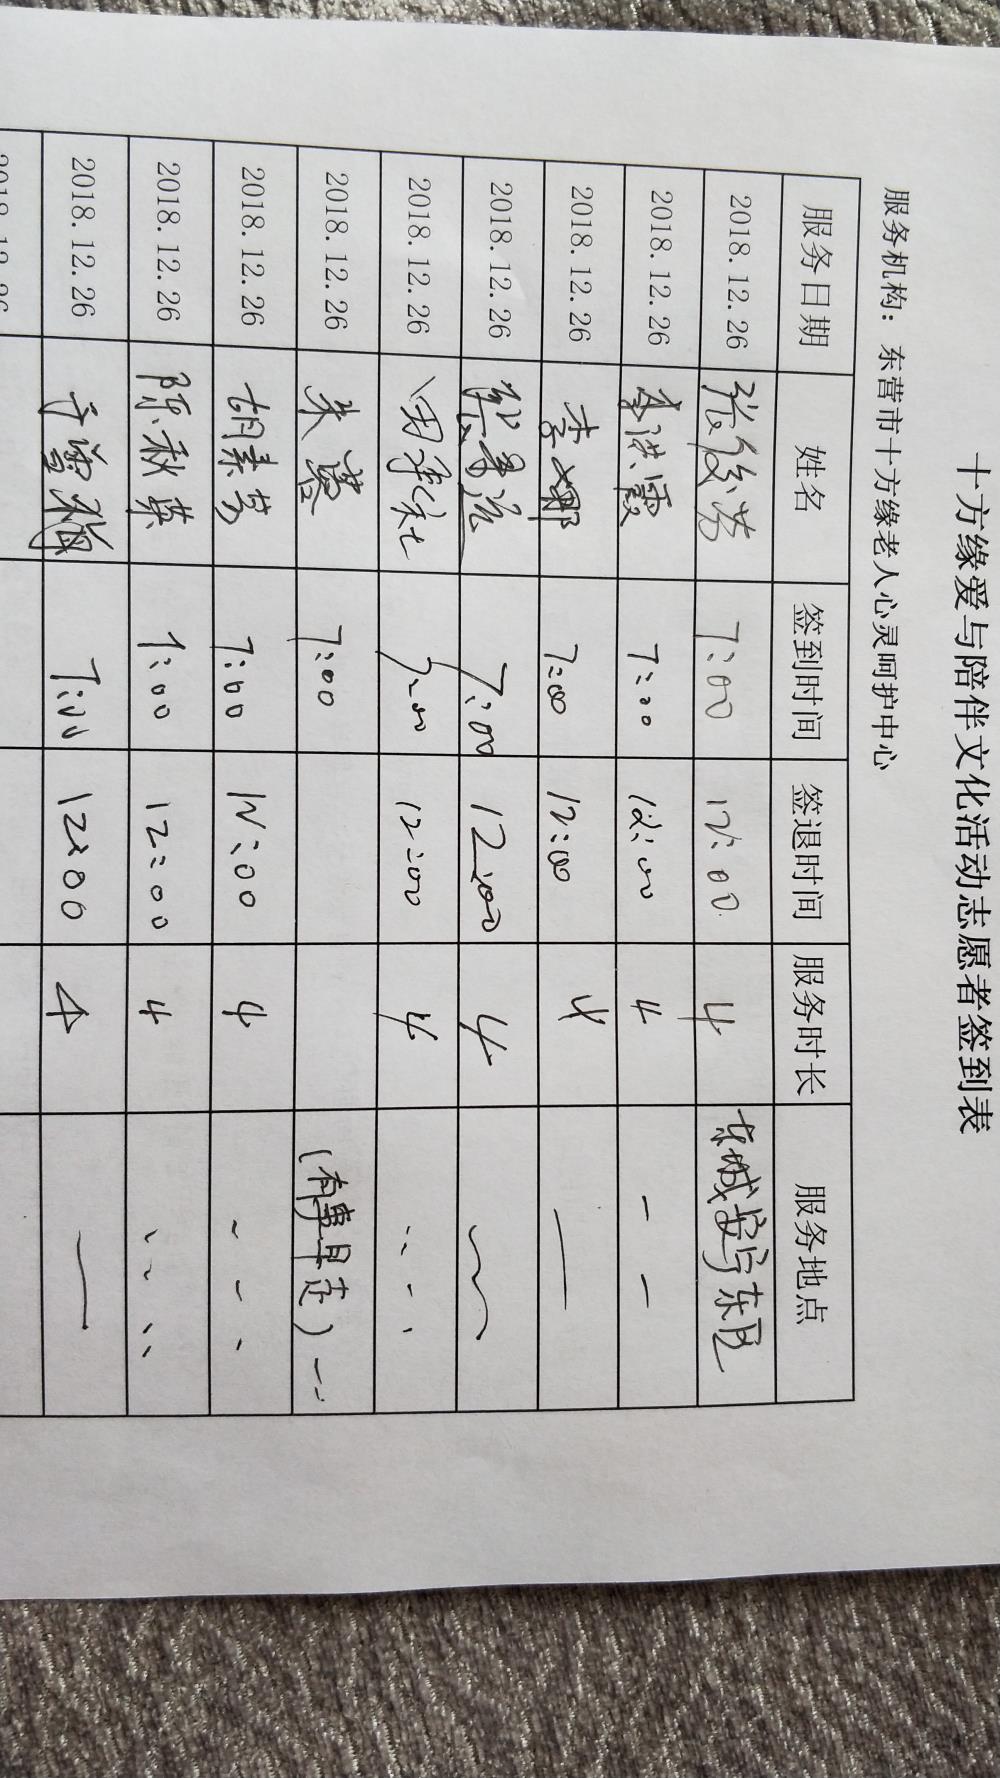 十方缘爱与陪伴文化活动志愿者签到表
服务机构：东营市十方缘老人心灵呵护中心
服务日期 姓名 签到时间 签退时间 服务时长 服务地点
2018.12.26 张俊芳 7:00 12:00 4 东城安宁东区
2018.12.26 李洪霞 7:00 12:00 4
2018.12.26 李娜 7:00 12:00 4
2018.12.26 7:00 12:00 4
2018.12.26 7:00 12:00 4
2018.12.26 朱 7:00 (有事早走)
2018.12.26 胡素芳 7:00 12:00 4
2018.12.26 陈秋英 7:00 12:00 4
2018.12.26 于雪梅 7:00 12:00 4
2018.12.26